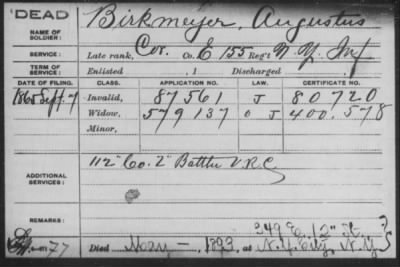 "DEAD"
NAME OF SOLDIER: Birkmeyer, Augustus
SERVICE: Late rank, Cor. Co. E 155 Reg't N.Y. Inf
TERM OF SERVICE: Enlisted , 1 Discharged , 1
DATE OF FILING. CLASS. APPLICATION NO. LAW. CERTIFICATE NO.
1865 Sept. 7 Invalid, 87561 J 80720
Widow, 579137 O J 400.578
Minor,
ADDITIONAL SERVICES: 112" Co. 2" Battln V.R.C.
REMARKS: 349 E. 12" St. ?
77 Died — 1893, at N.Y. City, N.Y.